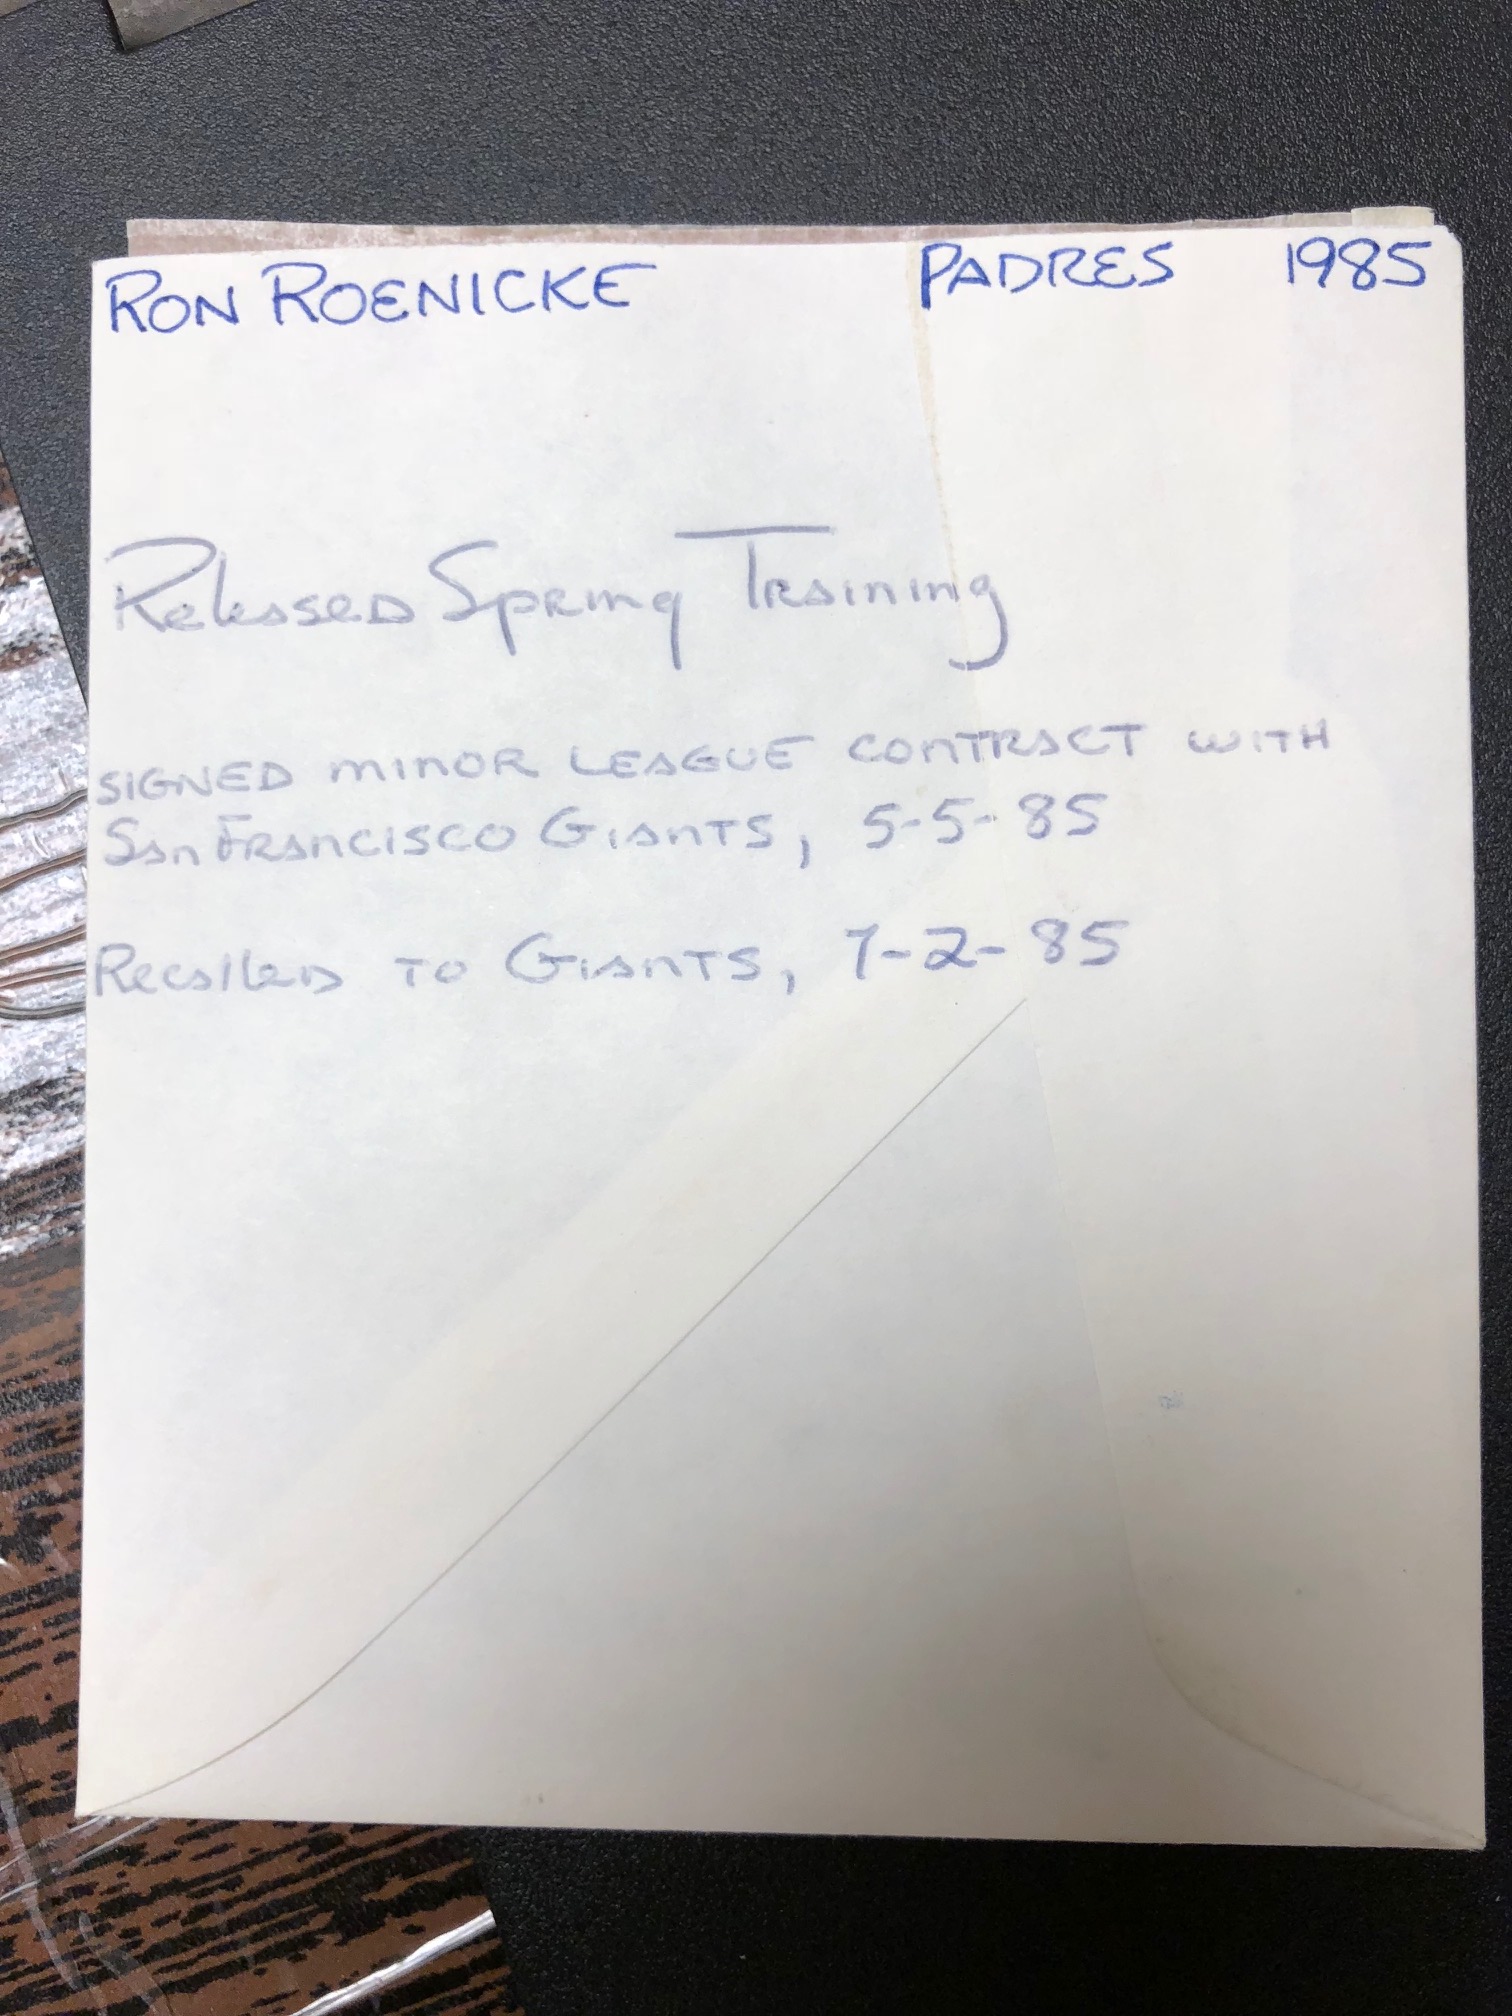 RON ROENICKE PADRES 1985
Released Spring Training
SIGNED MINOR LEAGUE CONTRACT WITH
San Francisco Giants, 5-5-85
Recalled to Giants, 7-2-85